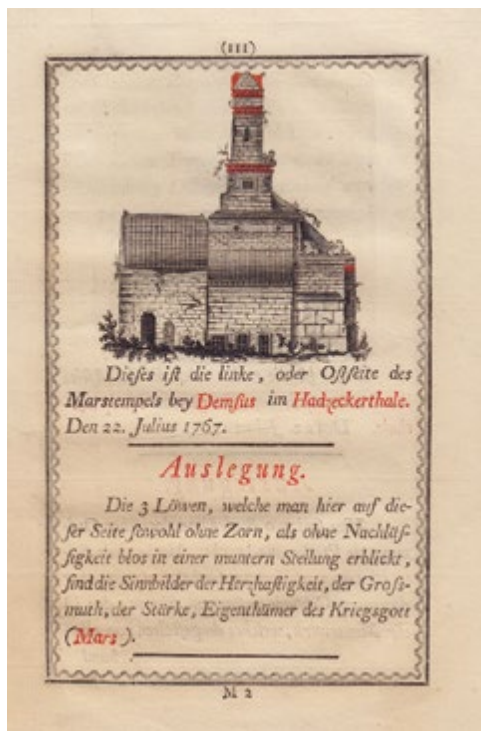 (III)
Dieſes iſt die linke, oder Oſtſeite des
Marstempels bey Demſus im Hadzeckerthale.
Den 22. Julius 1767.
Auslegung.
Die 3 Löwen, welche man hier auf die-
ſer Seite ſowohl ohne Zorn, als ohne Nachläſ-
ſigkeit blos in einer muntern Stellung erblickt,
ſind die Sinnbilder der Herzhaftigkeit, der Gros-
muth, der Stärke, Eigenthümer des Kriegsgott
(Mars).
M 2